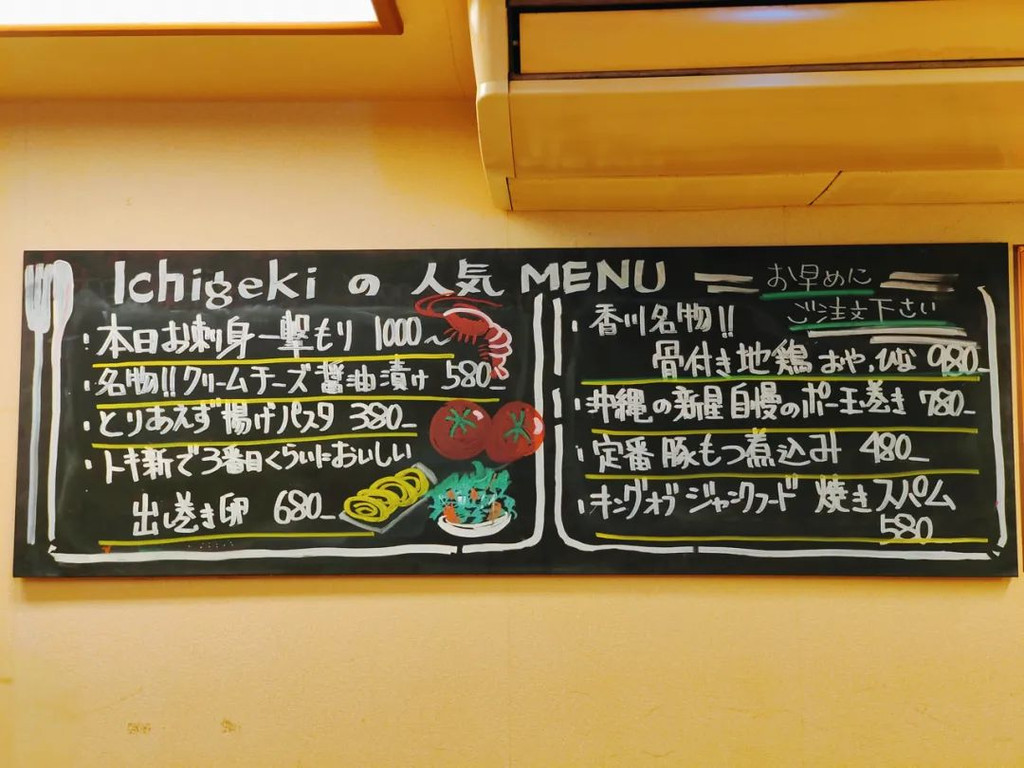 Ichigekiの人気MENU
お早めに
ご注文下さい
・本日お刺身一撃もり 1000〜
・名物!!クリームチーズ醤油漬け 580_
・とりあえず揚げパスタ 380_
・トキ新で3番目くらいにおいしい
出し巻き卵 680_
・香川名物!!
骨付き地鶏 おや、ひな 980_
・沖縄の新星自慢のポー玉巻き 780_
・定番豚もつ煮込み 480_
・キングオブジャンクフード 焼きスパム
580